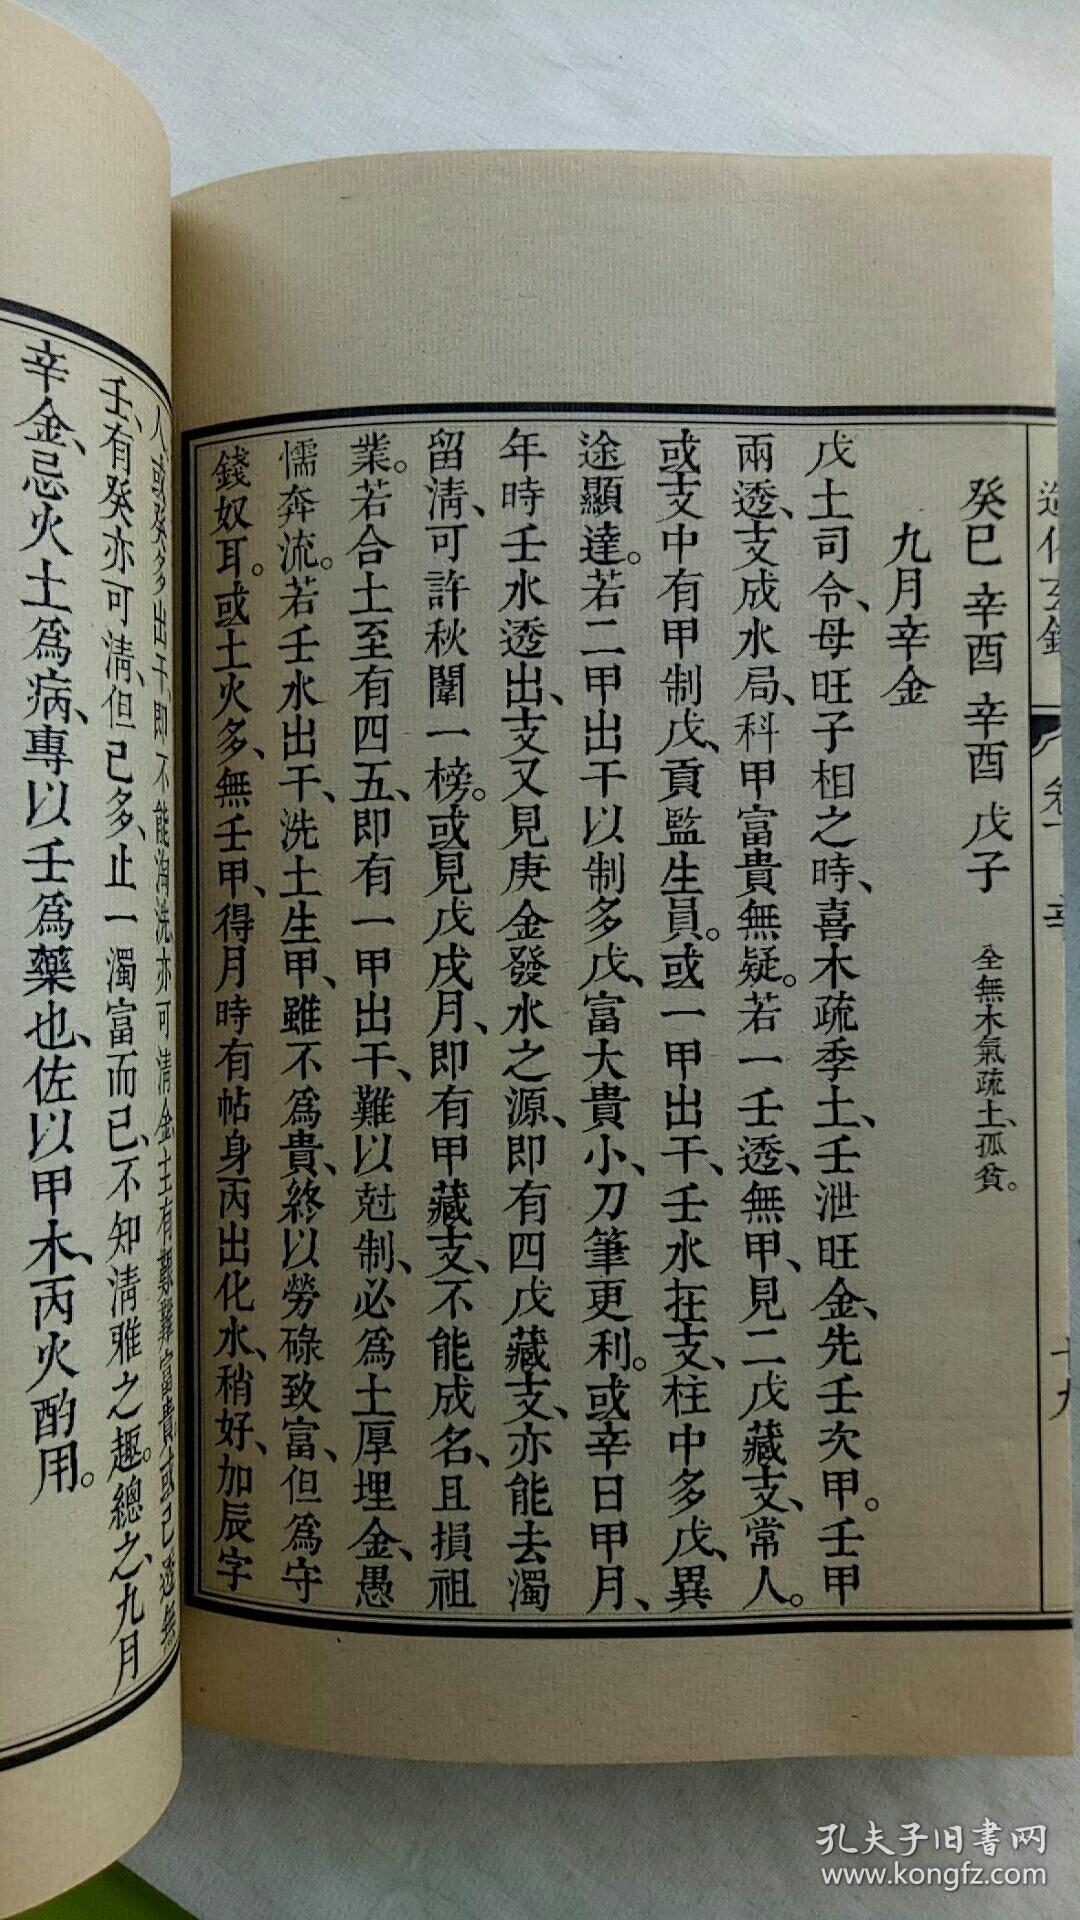 造化玄鑰
卷
辛
癸巳 辛酉 辛酉 戊子 全無木氣疏土、孤貧。
九月辛金
戊土司令、母旺子相之時、喜木疏季土、壬泄旺金、先壬次甲。壬甲
兩透、支成水局、科甲富貴無疑。若一壬透、無甲、見二戊藏支、常人。
或支中有甲制戊、貢監生員。或一甲出干、壬水在支、柱中多戊、異
途顯達。若二甲出干以制多戊、富大貴小、刀筆更利。或辛日甲月、
年時壬水透出、支又見庚金發水之源、即有四戊藏支、亦能去濁
留清、可許秋闈一榜。或見戊戌月、即有甲藏支、不能成名、且損祖
業。若合土至有四五、即有一甲出干、難以尅制、必為土厚埋金、愚
懦奔流。若壬水出干、洗土生甲、雖不為貴、終以勞碌致富、但為守
錢奴耳。或土火多、無壬甲、得月時有帖身丙出化水、稍好、加辰字
人、或癸多出干、即不能淘洗、亦可清金、主有艱難富貴、或己透無
壬、有癸亦可清、但己多、止一濁富而已、不知清雅之趣。總之、九月
辛金、忌火土為病、專以壬為藥也、佐以甲木、丙火酌用。
孔夫子旧書网
www.kongfz.com